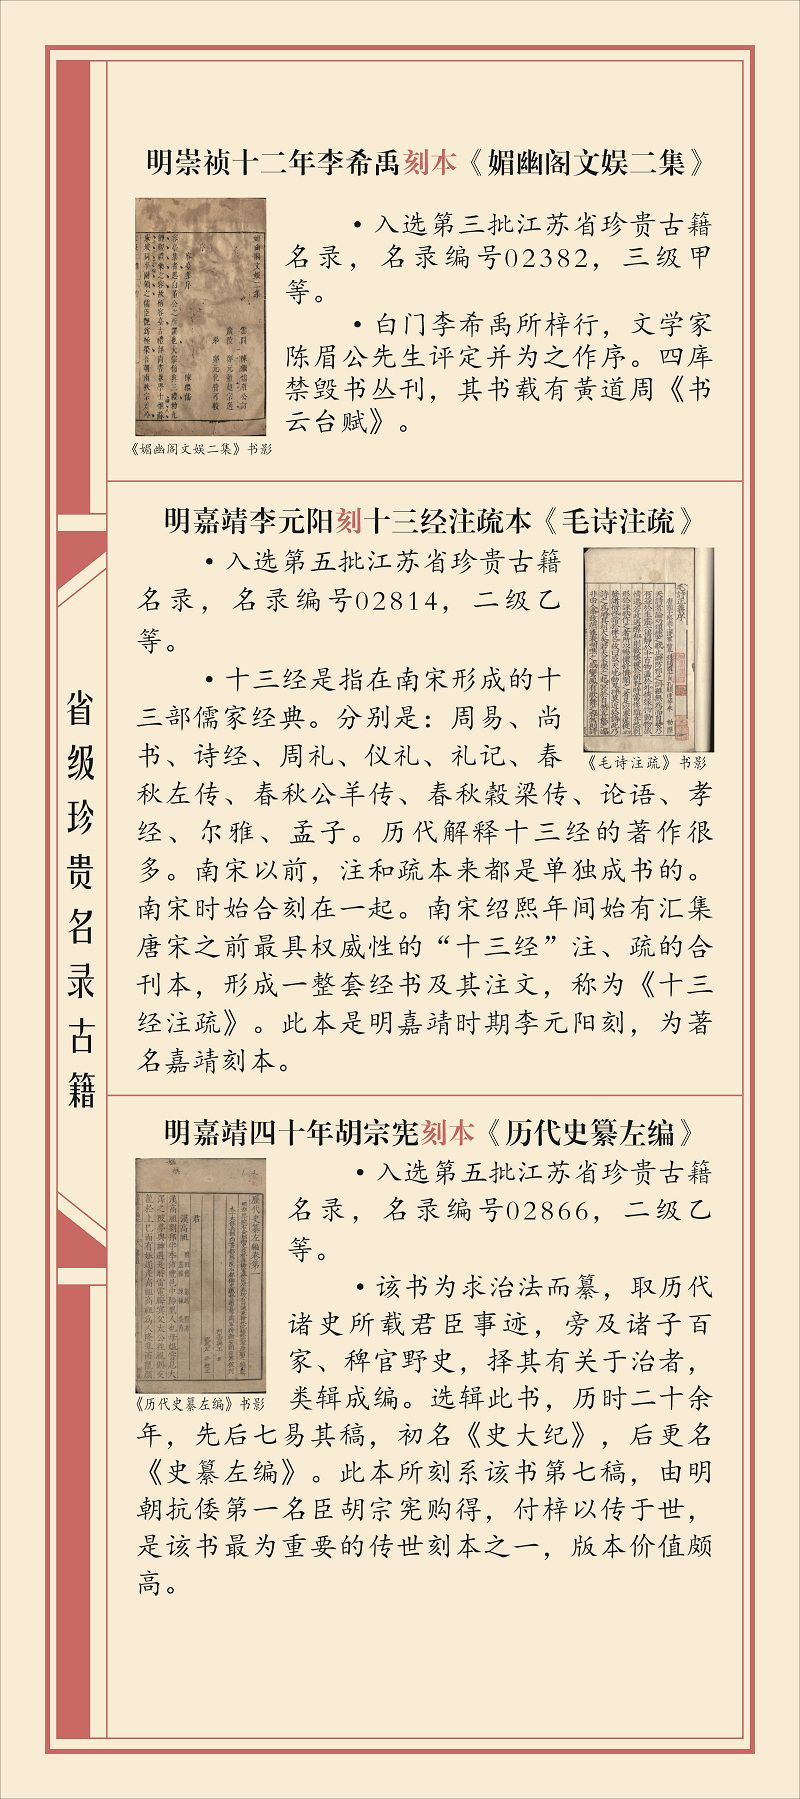 省级珍贵名录古籍
明崇祯十二年李希禹刻本《媚幽阁文娱二集》
•入选第三批江苏省珍贵古籍
名录，名录编号02382，三级甲
等。
•白门李希禹所梓行，文学家
陈眉公先生评定并为之作序。四库
禁毁书丛刊，其书载有黄道周《书
云台赋》。
《媚幽阁文娱二集》书影
明嘉靖李元阳刻十三经注疏本《毛诗注疏》
•入选第五批江苏省珍贵古籍
名录，名录编号02814，二级乙
等。
•十三经是指在南宋形成的十
三部儒家经典。分别是：周易、尚
书、诗经、周礼、仪礼、礼记、春
秋左传、春秋公羊传、春秋穀梁传、论语、孝
经、尔雅、孟子。历代解释十三经的著作很
多。南宋以前，注和疏本来都是单独成书的。
南宋时始合刻在一起。南宋绍熙年间始有汇集
唐宋之前最具权威性的“十三经”注、疏的合
刊本，形成一整套经书及其注文，称为《十三
经注疏》。此本是明嘉靖时期李元阳刻，为著
名嘉靖刻本。
《毛诗注疏》书影
明嘉靖四十年胡宗宪刻本《历代史纂左编》
•入选第五批江苏省珍贵古籍
名录，名录编号02866，二级乙
等。
•该书为求治法而纂，取历代
诸史所载君臣事迹，旁及诸子百
家、稗官野史，择其有关于治者，
类辑成编。选辑此书，历时二十余
年，先后七易其稿，初名《史大纪》，后更名
《史纂左编》。此本所刻系该书第七稿，由明
朝抗倭第一名臣胡宗宪购得，付梓以传于世，
是该书最为重要的传世刻本之一，版本价值颇
高。
《历代史纂左编》书影